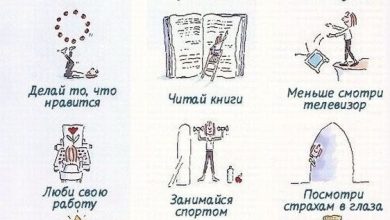 Делай то, что
нравится
Читай книги
Меньше смотри
телевизор
Люби свою
работу
Занимайся
спортом
Посмотри
страхам в глаза